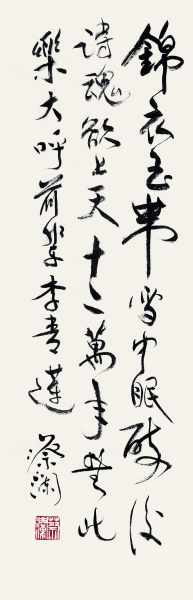 錦衣玉帶雪中眠醉後
詩魂欲上天十二萬年無此
樂大呼前輩李青蓮
蔡瀾